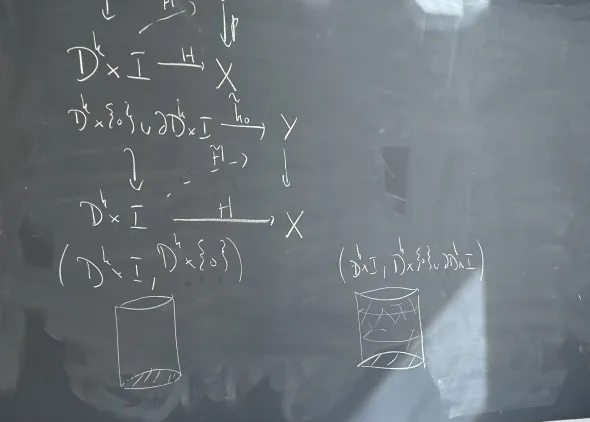 H̃ p
Dᵏ × I H→ X
Dᵏ × {0} ∪ ∂Dᵏ × I h̃₀→ Y
H̃
Dᵏ × I H→ X
(Dᵏ × I, Dᵏ × {0})
(Dᵏ × I, Dᵏ × {0} ∪ ∂Dᵏ × I)